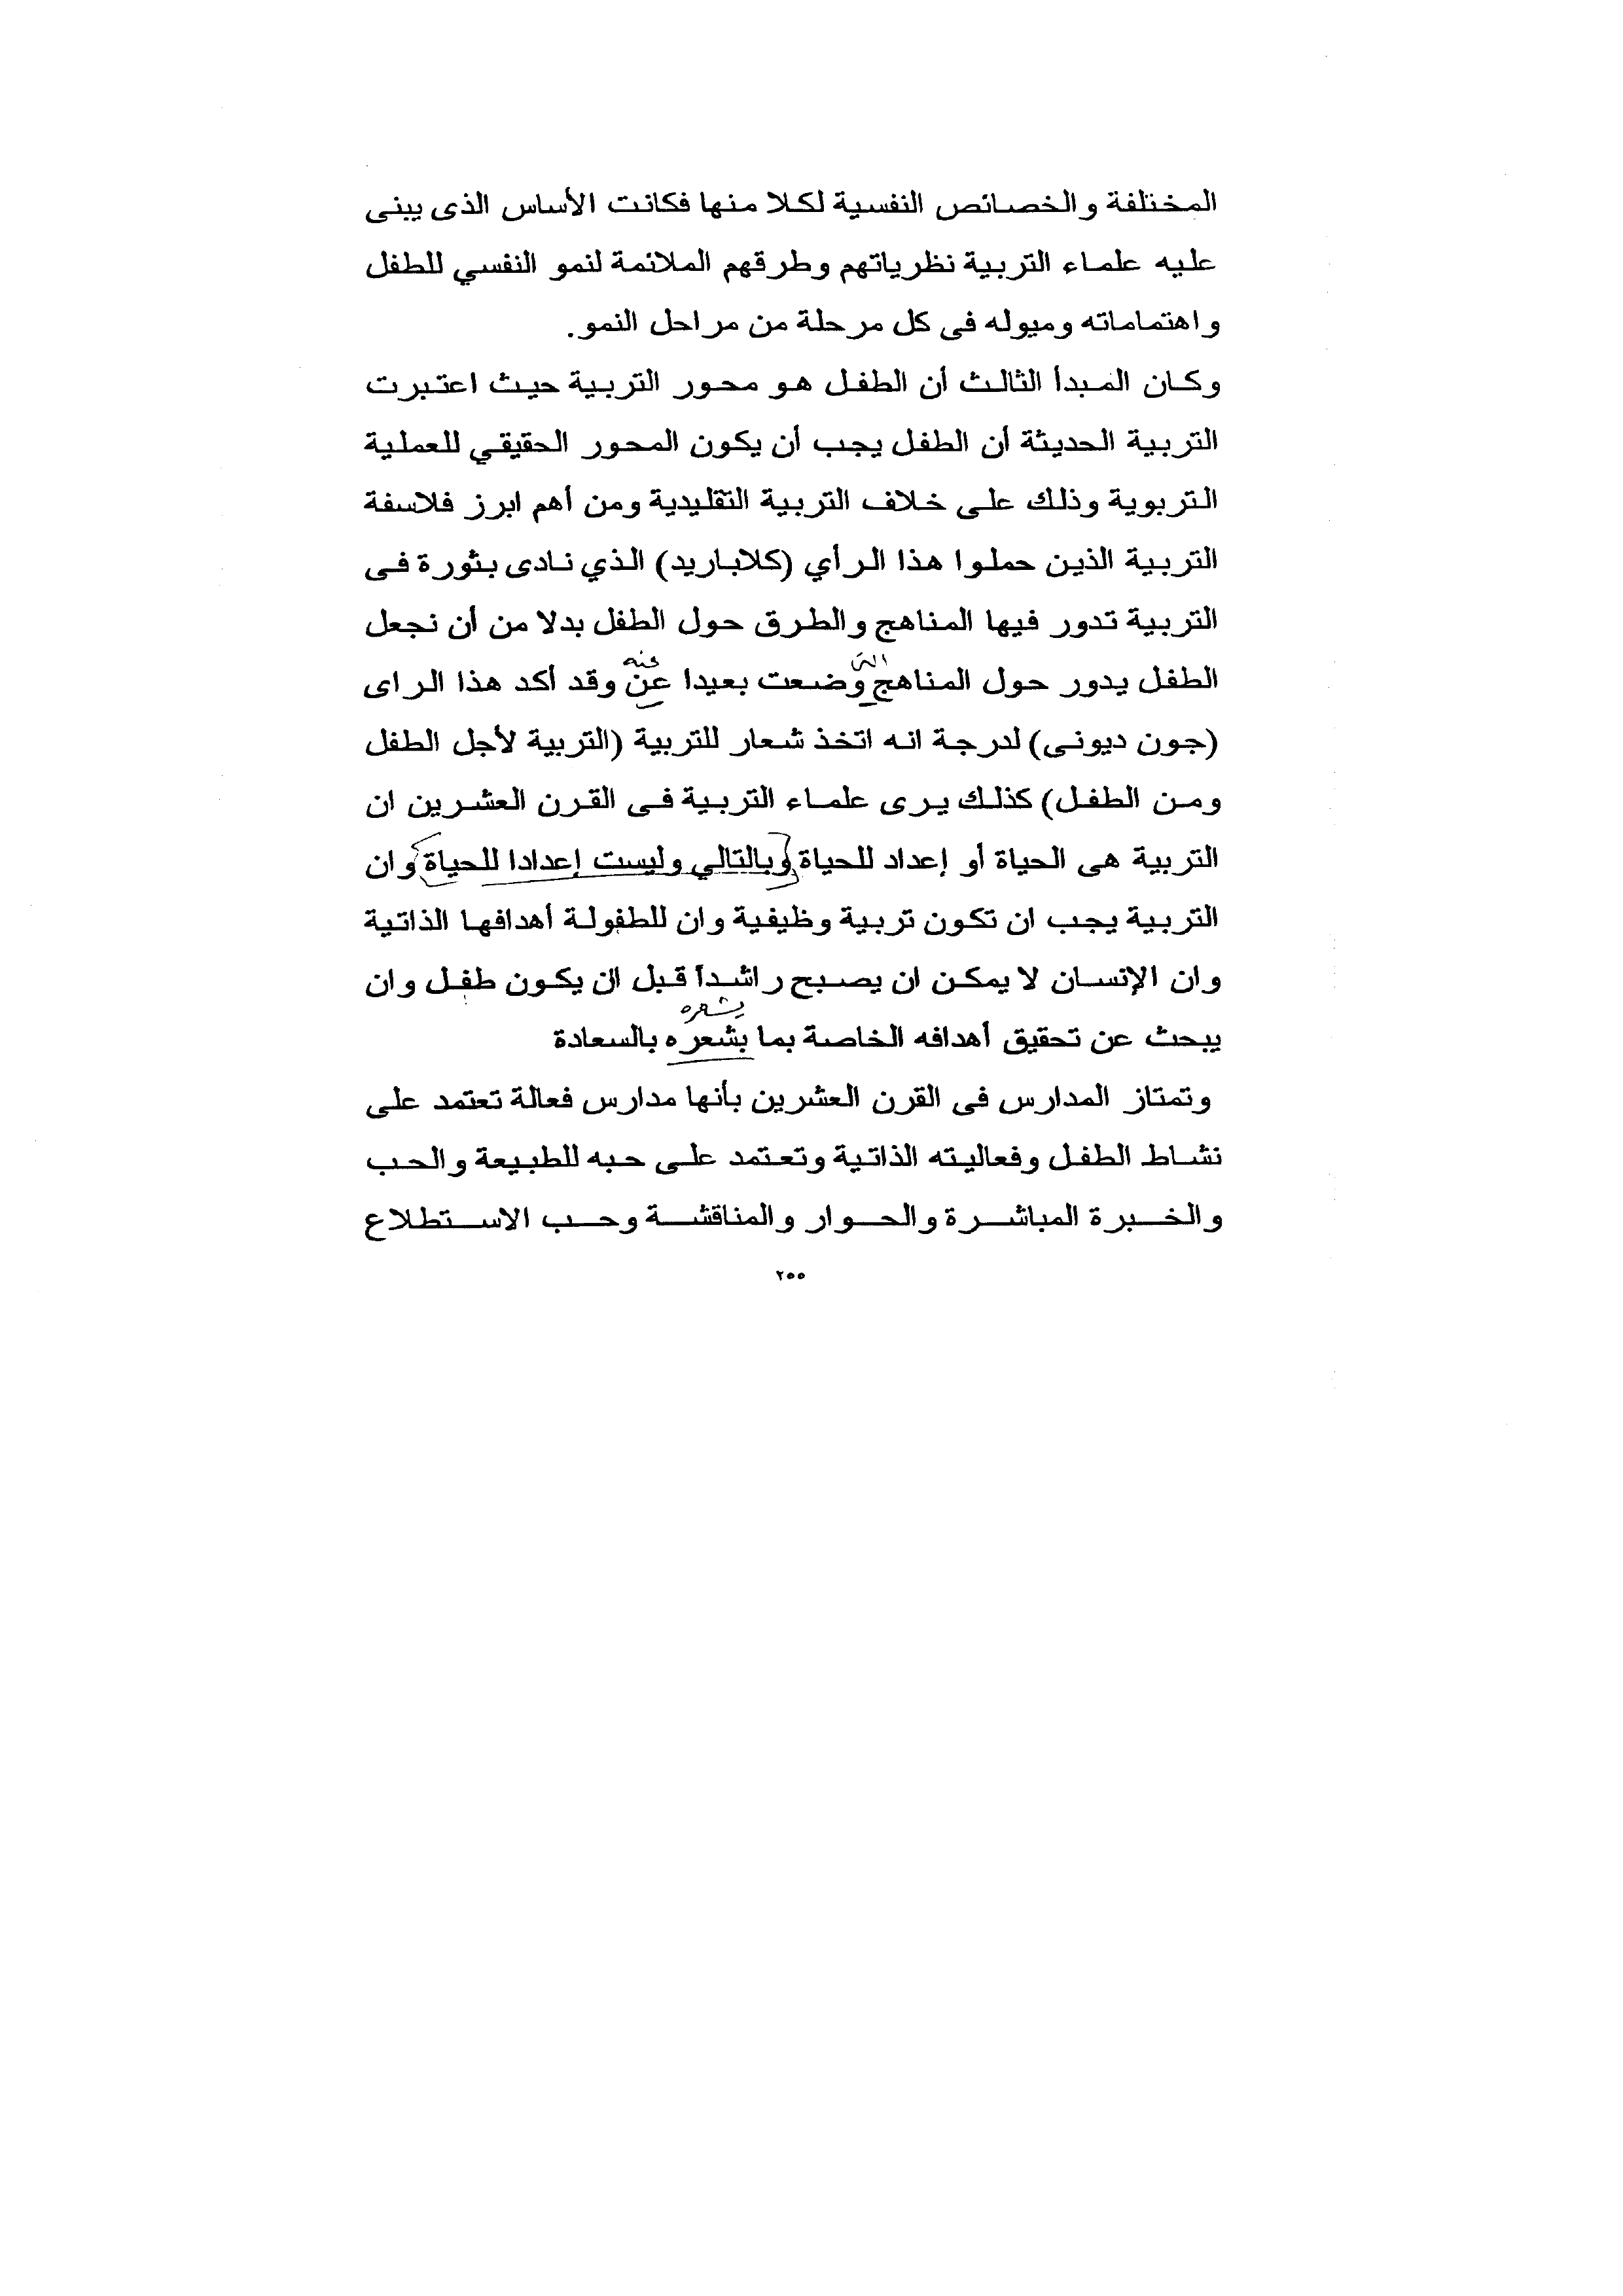 المختلفة والخصائص النفسية لكلا منها فكانت الأساس الذى يبنى
عليه علماء التربية نظرياتهم وطرقهم الملائمة لنمو النفسي للطفل
واهتماماته وميوله فى كل مرحلة من مراحل النمو.
وكان المبدأ الثالث أن الطفل هو محور التربية حيث اعتبرت
التربية الحديثة أن الطفل يجب أن يكون المحور الحقيقي للعملية
التربوية وذلك على خلاف التربية التقليدية ومن أهم ابرز فلاسفة
التربية الذين حملوا هذا الرأي (كلاباريد) الذي نادى بثورة فى
التربية تدور فيها المناهج والطرق حول الطفل بدلا من أن نجعل
التى عنه
الطفل يدور حول المناهج وضعت بعيدا عن وقد أكد هذا الراى
(جون ديونى) لدرجة انه اتخذ شعار للتربية (التربية لأجل الطفل
ومن الطفل) كذلك يرى علماء التربية فى القرن العشرين ان
التربية هى الحياة أو إعداد للحياة وبالتالي وليست إعدادا للحياة وان
التربية يجب ان تكون تربية وظيفية وان للطفولة أهدافها الذاتية
وان الإنسان لا يمكن ان يصبح راشداً قبل ان يكون طفل وان
يشعره
يبحث عن تحقيق أهدافه الخاصة بما بشعره بالسعادة
وتمتاز المدارس فى القرن العشرين بأنها مدارس فعالة تعتمد على
نشاط الطفل وفعاليته الذاتية وتعتمد على حبه للطبيعة والحب
والخبرة المباشرة والحوار والمناقشة وحب الاستطلاع
٢٥٥